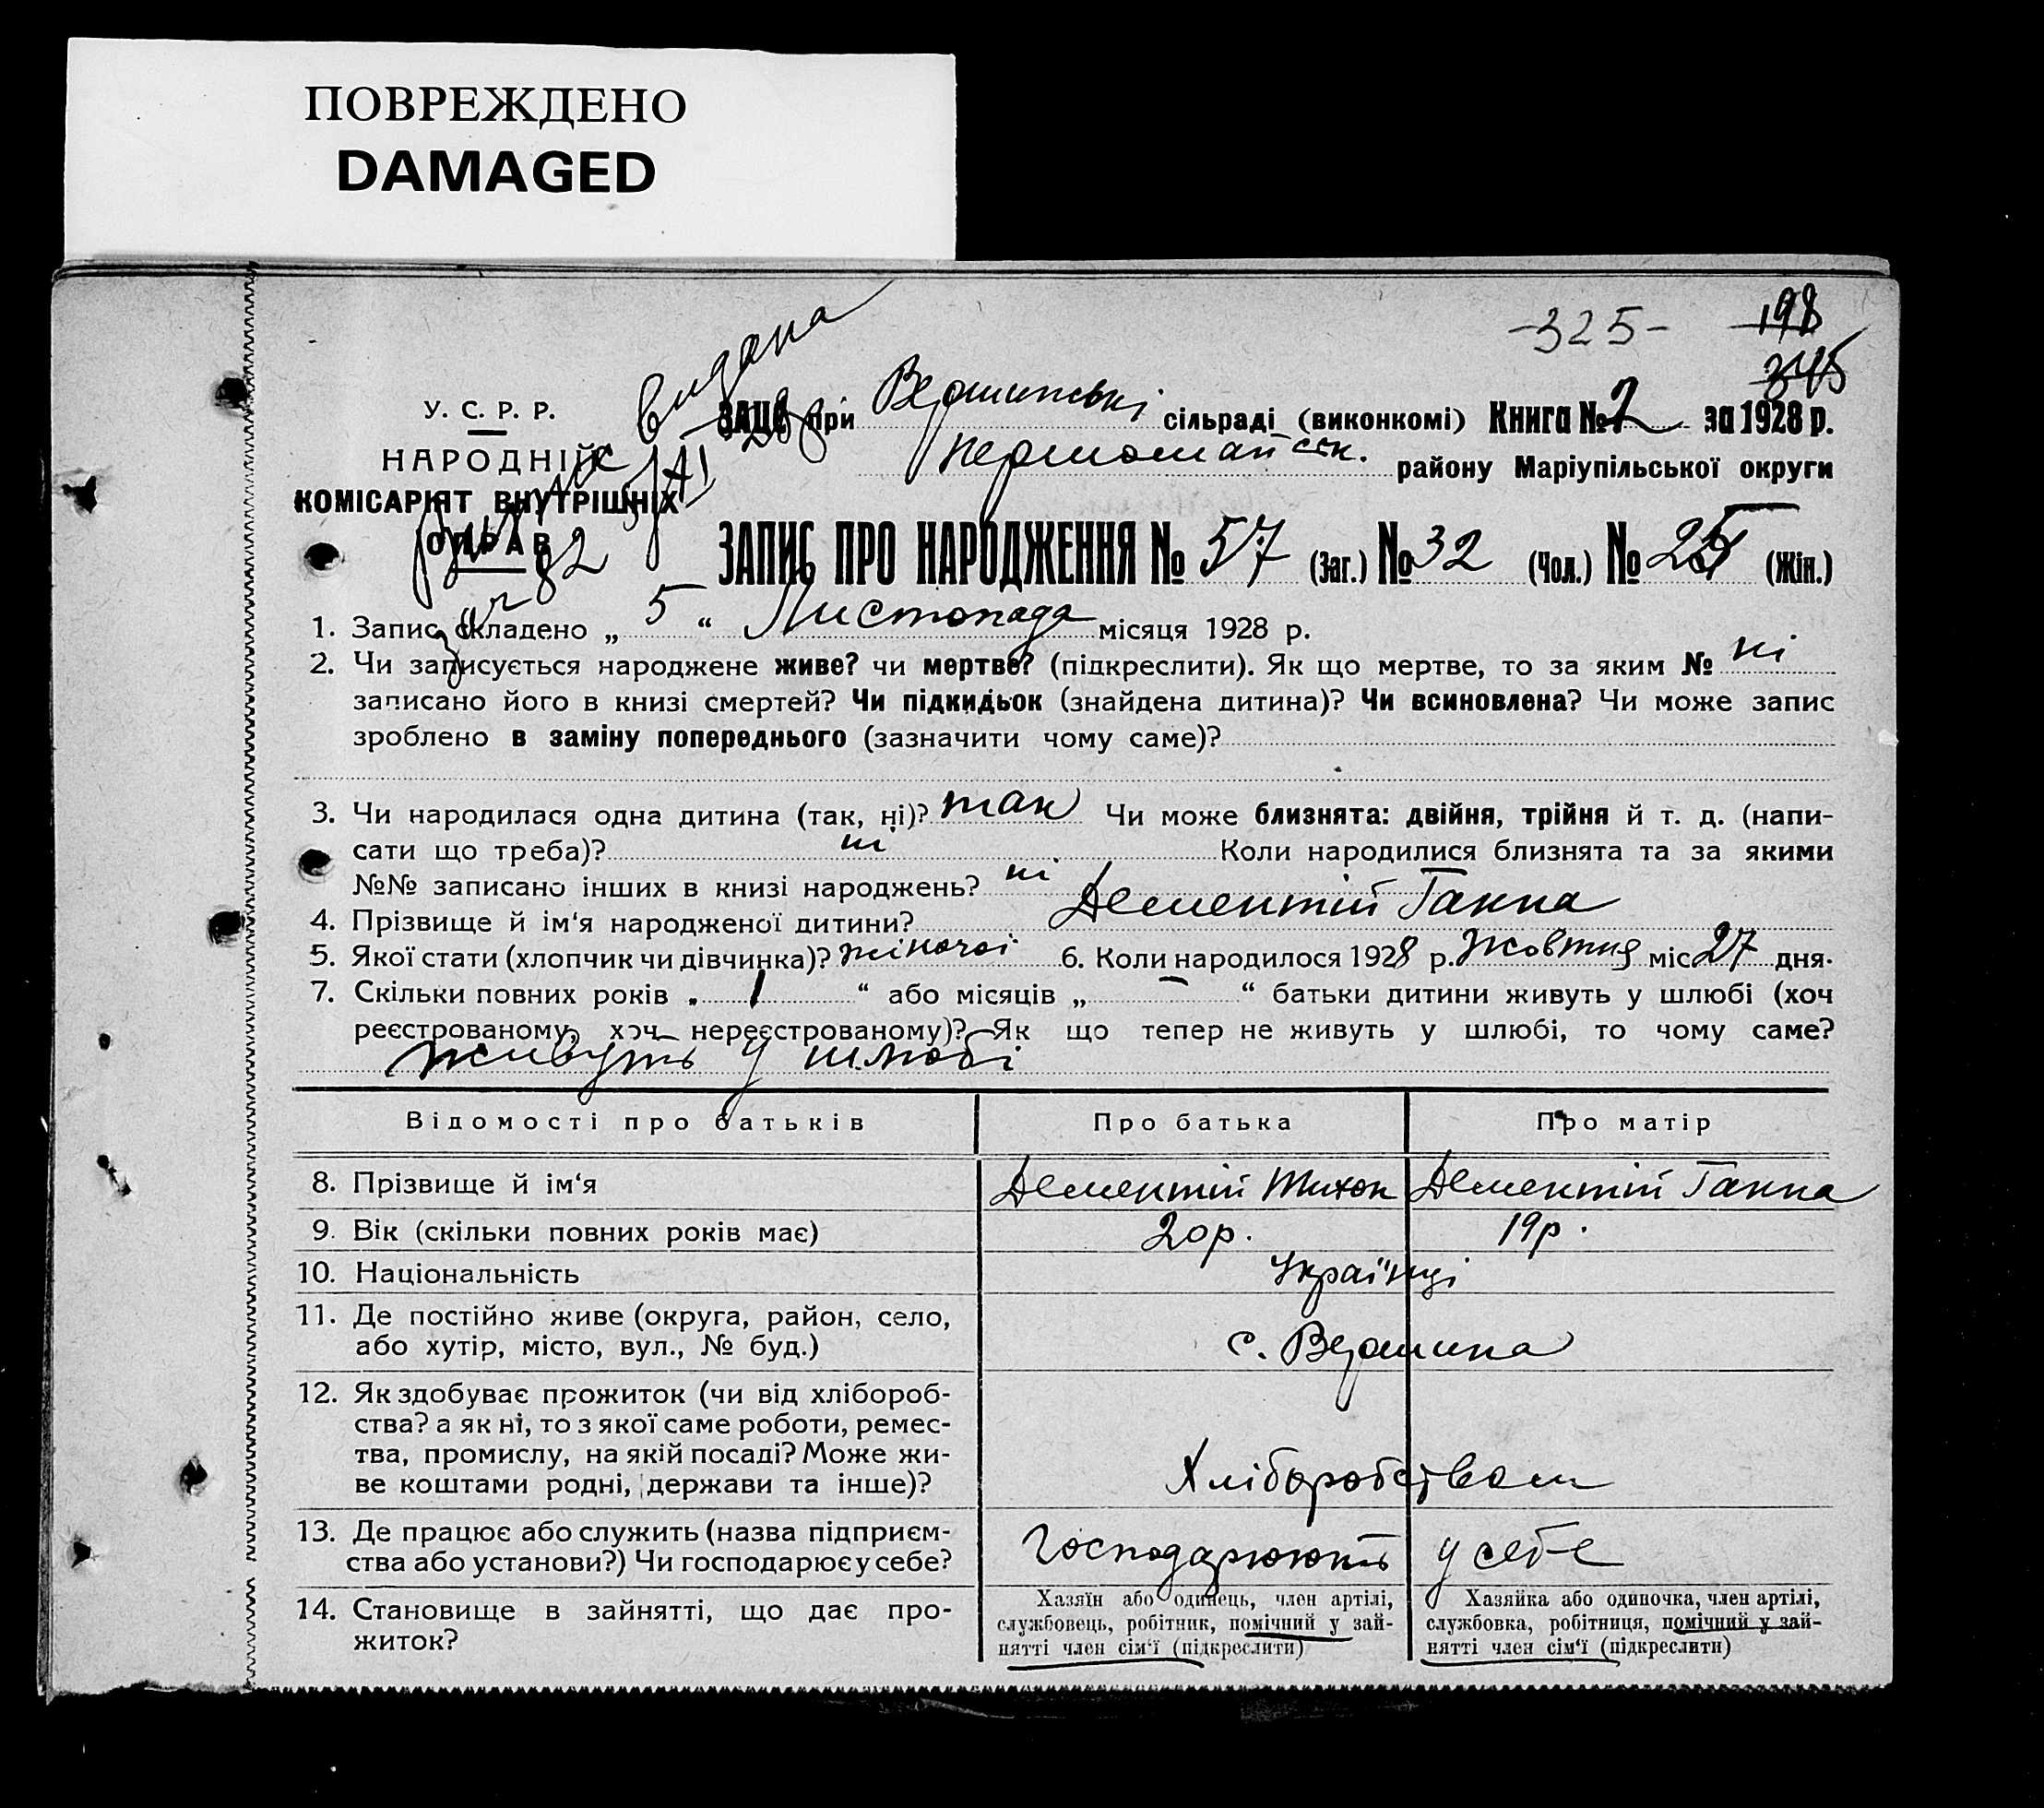 ПОВРЕЖДЕНО
DAMAGED
-325- 198
345
видана
У. С. Р. Р.
НАРОДНІЙ
КОМІСАРІЯТ ВНУТРІШНІХ
СПРАВ
ЗАЦС при сільраді (виконкомі) Книга № 2 за 1928 р.
першомайськ. району Маріупільської округи
ЗАПИС ПРО НАРОДЖЕННЯ № 57 (Заг.) № 32 (Чол.) № 25 (Жін.)
1. Запис складено „ 5 “ Листопада місяця 1928 р.
2. Чи записується народжене живе? чи мертве? (підкреслити). Як що мертве, то за яким № ні
записано його в книзі смертей? Чи підкидьок (знайдена дитина)? Чи всиновлена? Чи може запис
зроблено в заміну попереднього (зазначити чому саме)?
3. Чи народилася одна дитина (так, ні)? так Чи може близнята: двійня, трійня й т. д. (напи-
сати що треба)? ні Коли народилися близнята та за якими
№№ записано інших в книзі народжень? ні
4. Прізвище й ім‘я народженої дитини? Дементій Ганна
5. Якої стати (хлопчик чи дівчинка)? жіночої 6. Коли народилося 1928 р. Жовтня міс 27 дня.
7. Скільки повних років „ 1 “ або місяців „ — “ батьки дитини живуть у шлюбі (хоч
реєстрованому, хоч нереєстрованому)? Як що тепер не живуть у шлюбі, то чому саме?
живуть у шлюбі
Відомості про батьків Про батька Про матір
8. Прізвище й ім‘я Дементій Тихон Дементій Ганна
9. Вік (скільки повних років має) 20р. 19р.
10. Національність Українці
11. Де постійно живе (округа, район, село,
або хутір, місто, вул., № буд.) с.
12. Як здобуває прожиток (чи від хлібороб-
ства? а як ні, то з якої саме роботи, ремес-
тва, промислу, на якій посаді? Може жи-
ве коштами родні, держави та інше)? Хліборобством
13. Де працює або служить (назва підприєм-
ства або установи?) Чи господарює у себе? Господарюють у себе
14. Становище в зайнятті, що дає про-
житок?
Хазяїн або одинець, член артілі,
службовець, робітник, помічний у зай-
нятті член сім‘ї (підкреслити)
Хазяйка або одиночка, член артілі,
службовка, робітниця, помічний у зай-
нятті член сім‘ї (підкреслити)